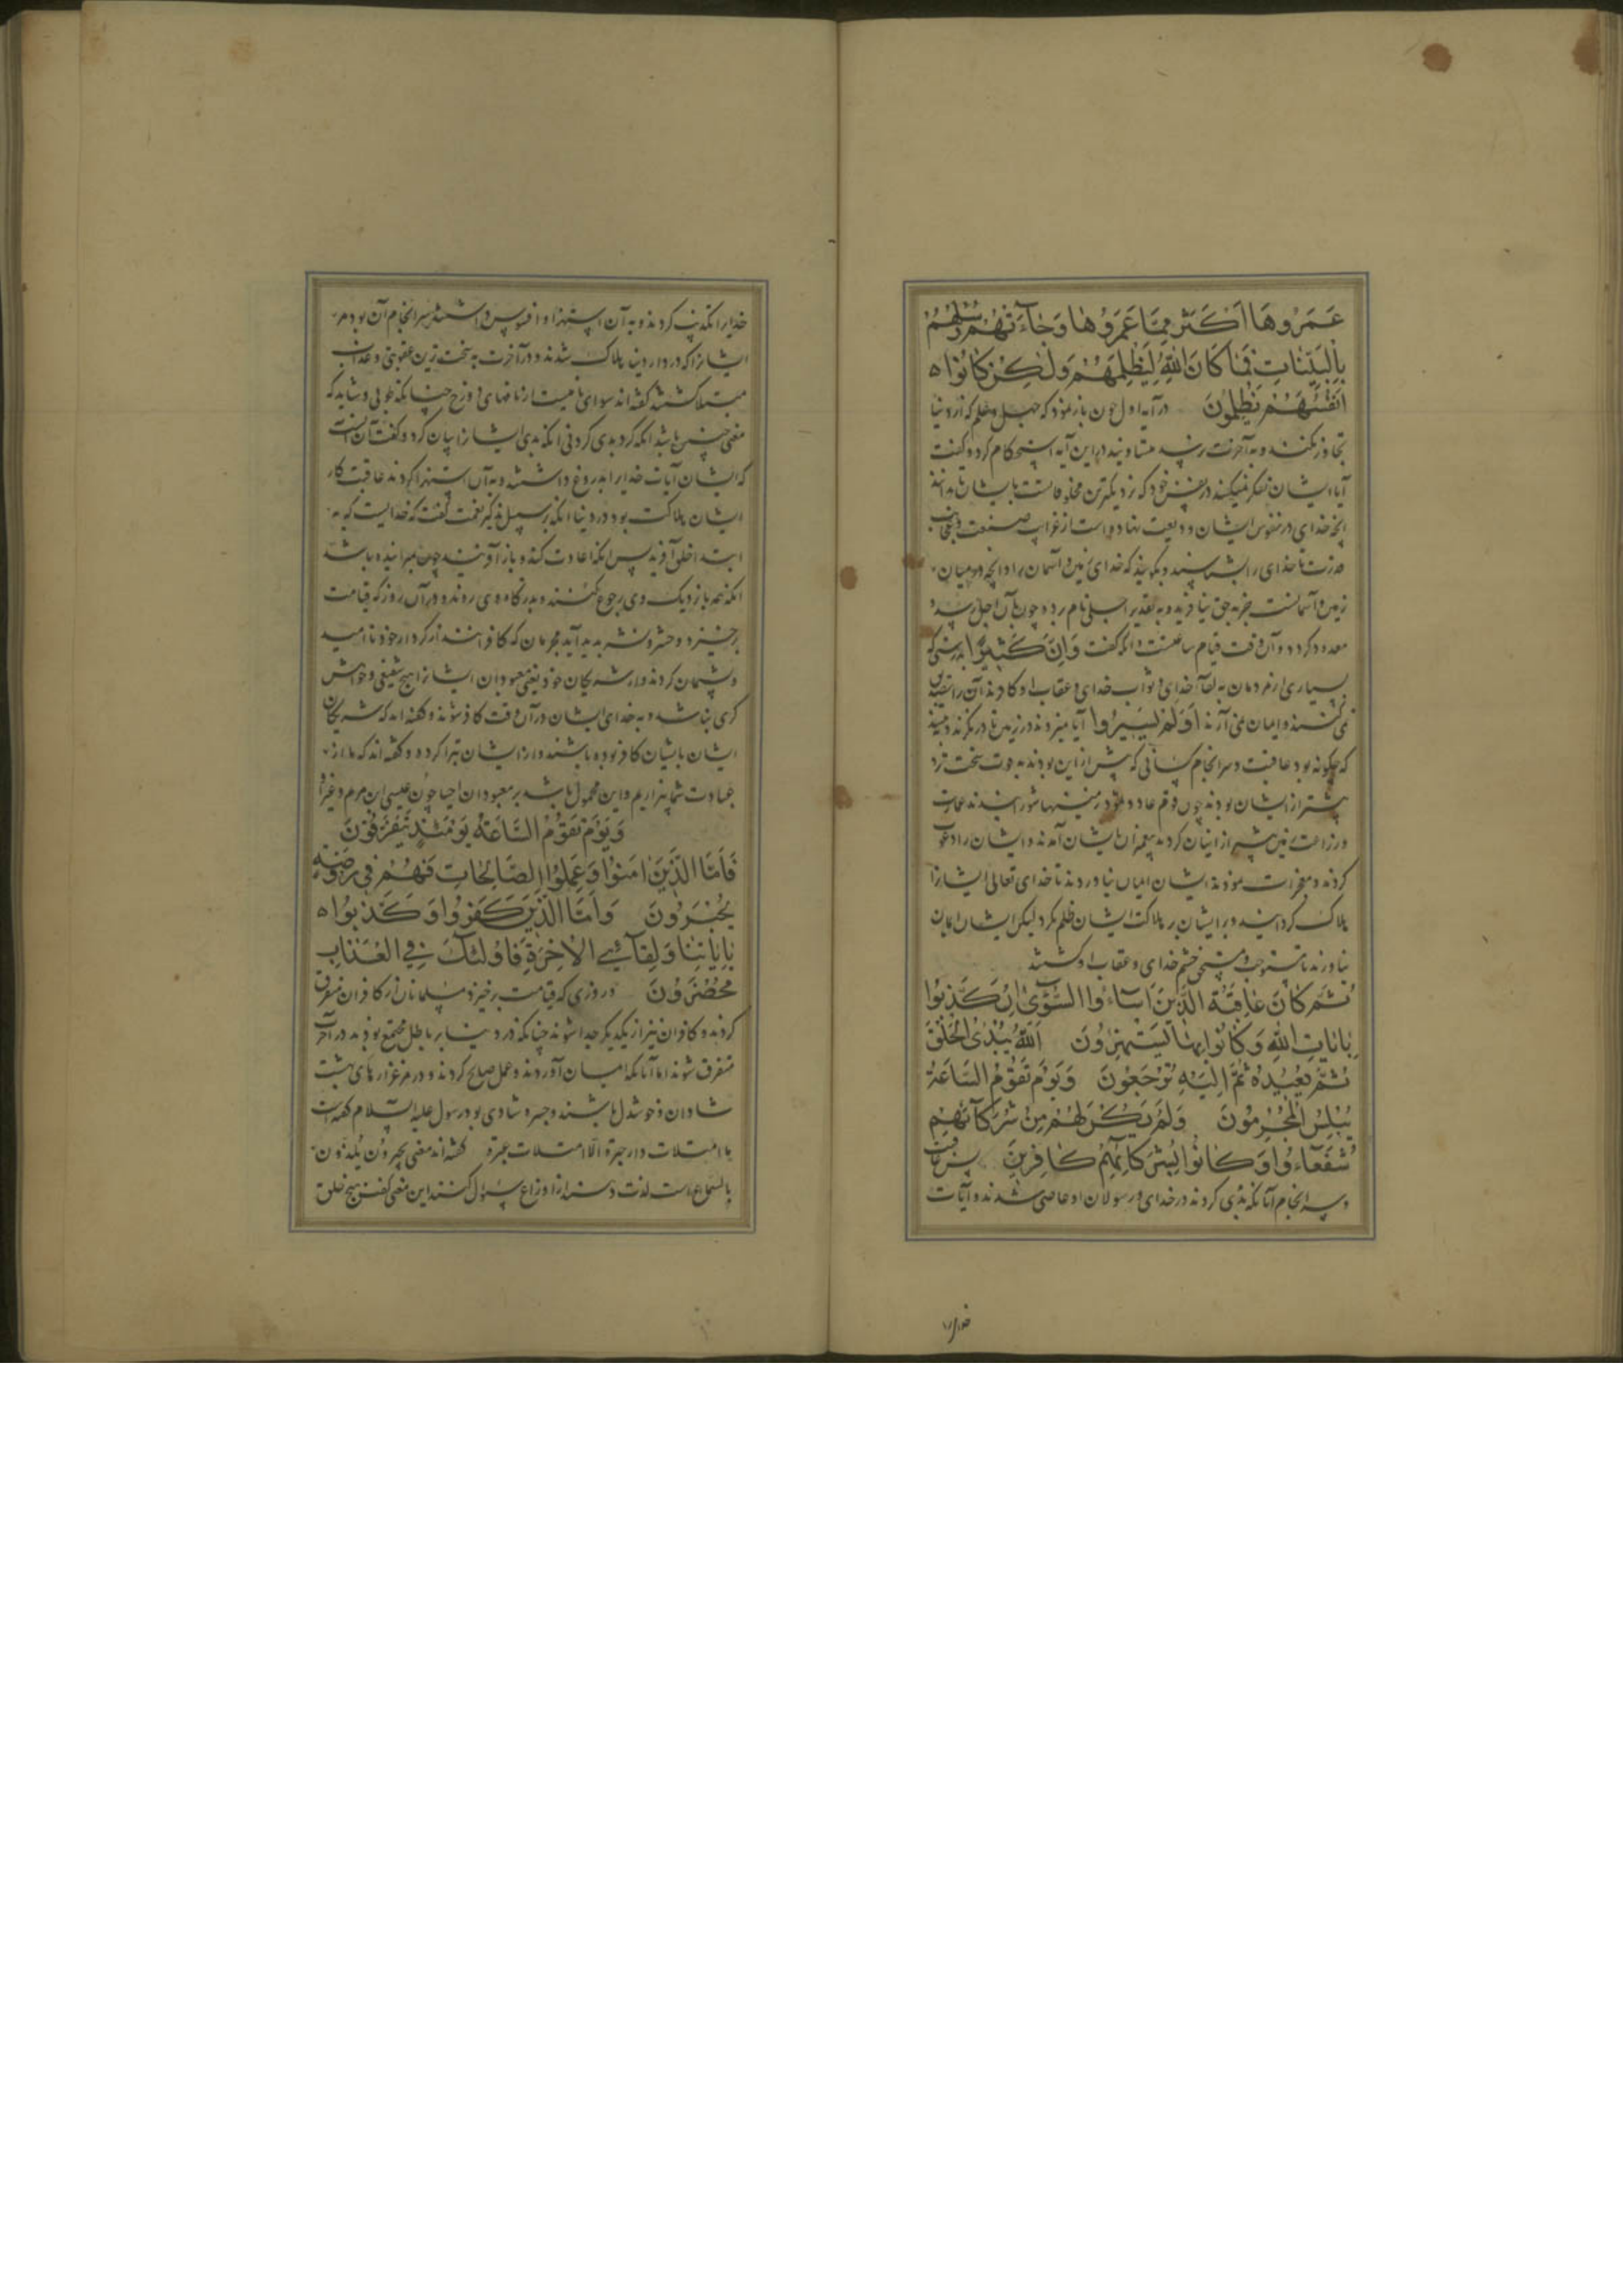 عَمَرُوهَا اَكْثَرَ مِمَّا عَمَرُوهَا وَجَاءَتْهُمْ رُسُلُهُمْ
بِالْبَيِّنَاتِ فَمَا كَانَ اللّٰهُ لِيَظْلِمَهُمْ وَلٰكِنْ كَانُوا ه
اَنْفُسَهُمْ يَظْلِمُونَ در آیه اول چون باز نمود که جهل و علم که از دنیا
تجاوز نکنند و به آخرت نرسد متساویند در این آیه استحکام کرد و گفت
آیا ایشان تفکر نمیکنند در نفس خود که نزدیکترین مخلوقاتست با ایشان تا بدانند
آنچه خدای در نفوس ایشان ودیعت نهاده است از غرایب صنعت و عجایب
قدرت تا خدای را بشناسند و بگویند که خدای زمین و آسمان را و آنچه در میان
زمین و آسمانست جز به حق نیافرید و به تقدیر اجلی نام برد و چون بآن اجل رسد
معدود کردد و آن وقت قیام ساعتست و آنکه گفت وَاِنَّ كَثِيرًا بدرستی که
بسیاری از مردمان به لقاء خدای و ثواب خدای و عقاب او کافرند آن را تصدیق
نمی کنند و ایمان نمی آرند اَوَلَمْ يَسِيرُوا آیا نمیروند در زمین تا در نگرند و ببینند
که چگونه بود عاقبت و سرانجام کسانی که پیش از این بودند به قوت سخت تر
بیشتر از ایشان بودند چون قوم عاد و ثمود زمینها شورانیدند عمارت
و زراعت زمین بیشتر از اینان کردند پیغمبران بایشان آمدند و ایشان را دعوت
کردند و معجزات نمودند ایشان ایمان نیاوردند تا خدای تعالی ایشانرا
هلاک گردانید و بر ایشان بر هلاکت ایشان ظلم نکرد لیکن ایشان ایمان
نیاوردند تا مستوجب و مستحق خشم خدای و عقاب او گشتند
ثُمَّ كَانَ عَاقِبَةَ الَّذِينَ اَسَاءُوا السُّوٓأٰى اَنْ كَذَّبُوا
بِاٰيَاتِ اللّٰهِ وَكَانُوا بِهَا يَسْتَهْزِءُونَ اَللّٰهُ يَبْدَئُ الْخَلْقَ
ثُمَّ يُعِيدُهُ ثُمَّ اِلَيْهِ تُرْجَعُونَ وَيَوْمَ تَقُومُ السَّاعَةُ
يُبْلِسُ الْمُجْرِمُونَ وَلَمْ يَكُنْ لَهُمْ مِنْ شُرَكَائِهِمْ
شُفَعَاءُ وَكَانُوا بِشُرَكَائِهِمْ كَافِرِينَ پس عاقبت
و سرانجام آنانکه بدی کردند در خدای و رسولان او عاصی شدند و آیات
خدایرا
خدایرا تکذیب کردند و به آن استهزا و افسوس داشتند سرانجام آن بود مر
ایشانرا که در دار دنیا هلاک شدند و در آخرت به سخت ترین عقوبتی و عذاب
مبتلا گشتند گفته اند سوای نامیست از نامهای دوزخ چنانکه طوبی و شاید که
معنی چنین باشد آنکه گرد بدی کردنی آنکه بدی ایشانرا بیان کرد و گفت آن است
که ایشان آیات خدایرا بدروغ داشتند و به آن استهزا کردند عاقبت کار
ایشان هلاکت بود در دنیا آنکه بر سبیل تذکر نعمت گفت که خدایست که به
ابتدا خلق آفرید پس آنکه اعادت کند و باز آفریند چون میرانیده باشد
آنکه همه با نزدیک وی رجوع کنند و بدرگاه وی روند و در آن روز که قیامت
برخیزد و حشر و نشر پدید آید مجرمان که کافر باشند از کردار خود ناامید
و پشیمان گردند و از شریکان خود یعنی معبودان ایشانرا هیچ شفیعی و خواهش
کری نباشد و به خدای ایشان در آن وقت کافر شوند و گفته اند که شریکان
ایشان بایشان کافر بوده باشند و از ایشان تبرا کرده و گفته اند که ما از
عبادت شما بیزاریم و این محمول باشد بر معبودان احیا چون عیسی ابن مریم و غیر او
وَيَوْمَ تَقُومُ السَّاعَةُ يَوْمَئِذٍ يَتَفَرَّقُونَ
فَاَمَّا الَّذِينَ اٰمَنُوا وَعَمِلُوا الصَّالِحَاتِ فَهُمْ فِي رَوْضَةٍ
يُحْبَرُونَ وَاَمَّا الَّذِينَ كَفَرُوا وَكَذَّبُوا ه
بِاٰيَاتِنَا وَلِقَائِ الْاٰخِرَةِ فَاُولٰئِكَ فِي الْعَذَابِ
مُحْضَرُونَ و روزی که قیامت برخیزد مسلمانان از کافران متفرق
گردند و کافران نیز از یکدیگر جدا شوند چنانکه در دنیا بر باطل مجتمع بودند در آخرت
متفرق شوند اما آنانکه ایمان آوردند و عمل صالح کردند و در مرغزارهای بهشت
شادان و خوشدل باشند و حبره شادی بود رسول علیه السلام گفته است
ما امتلات دار حبرة الّا امتلات عبرة گفته اند معنی یحبرون یُلذّون
بالسماع است لذت دهند اوزاعی این معنی گفت هیچ خلق